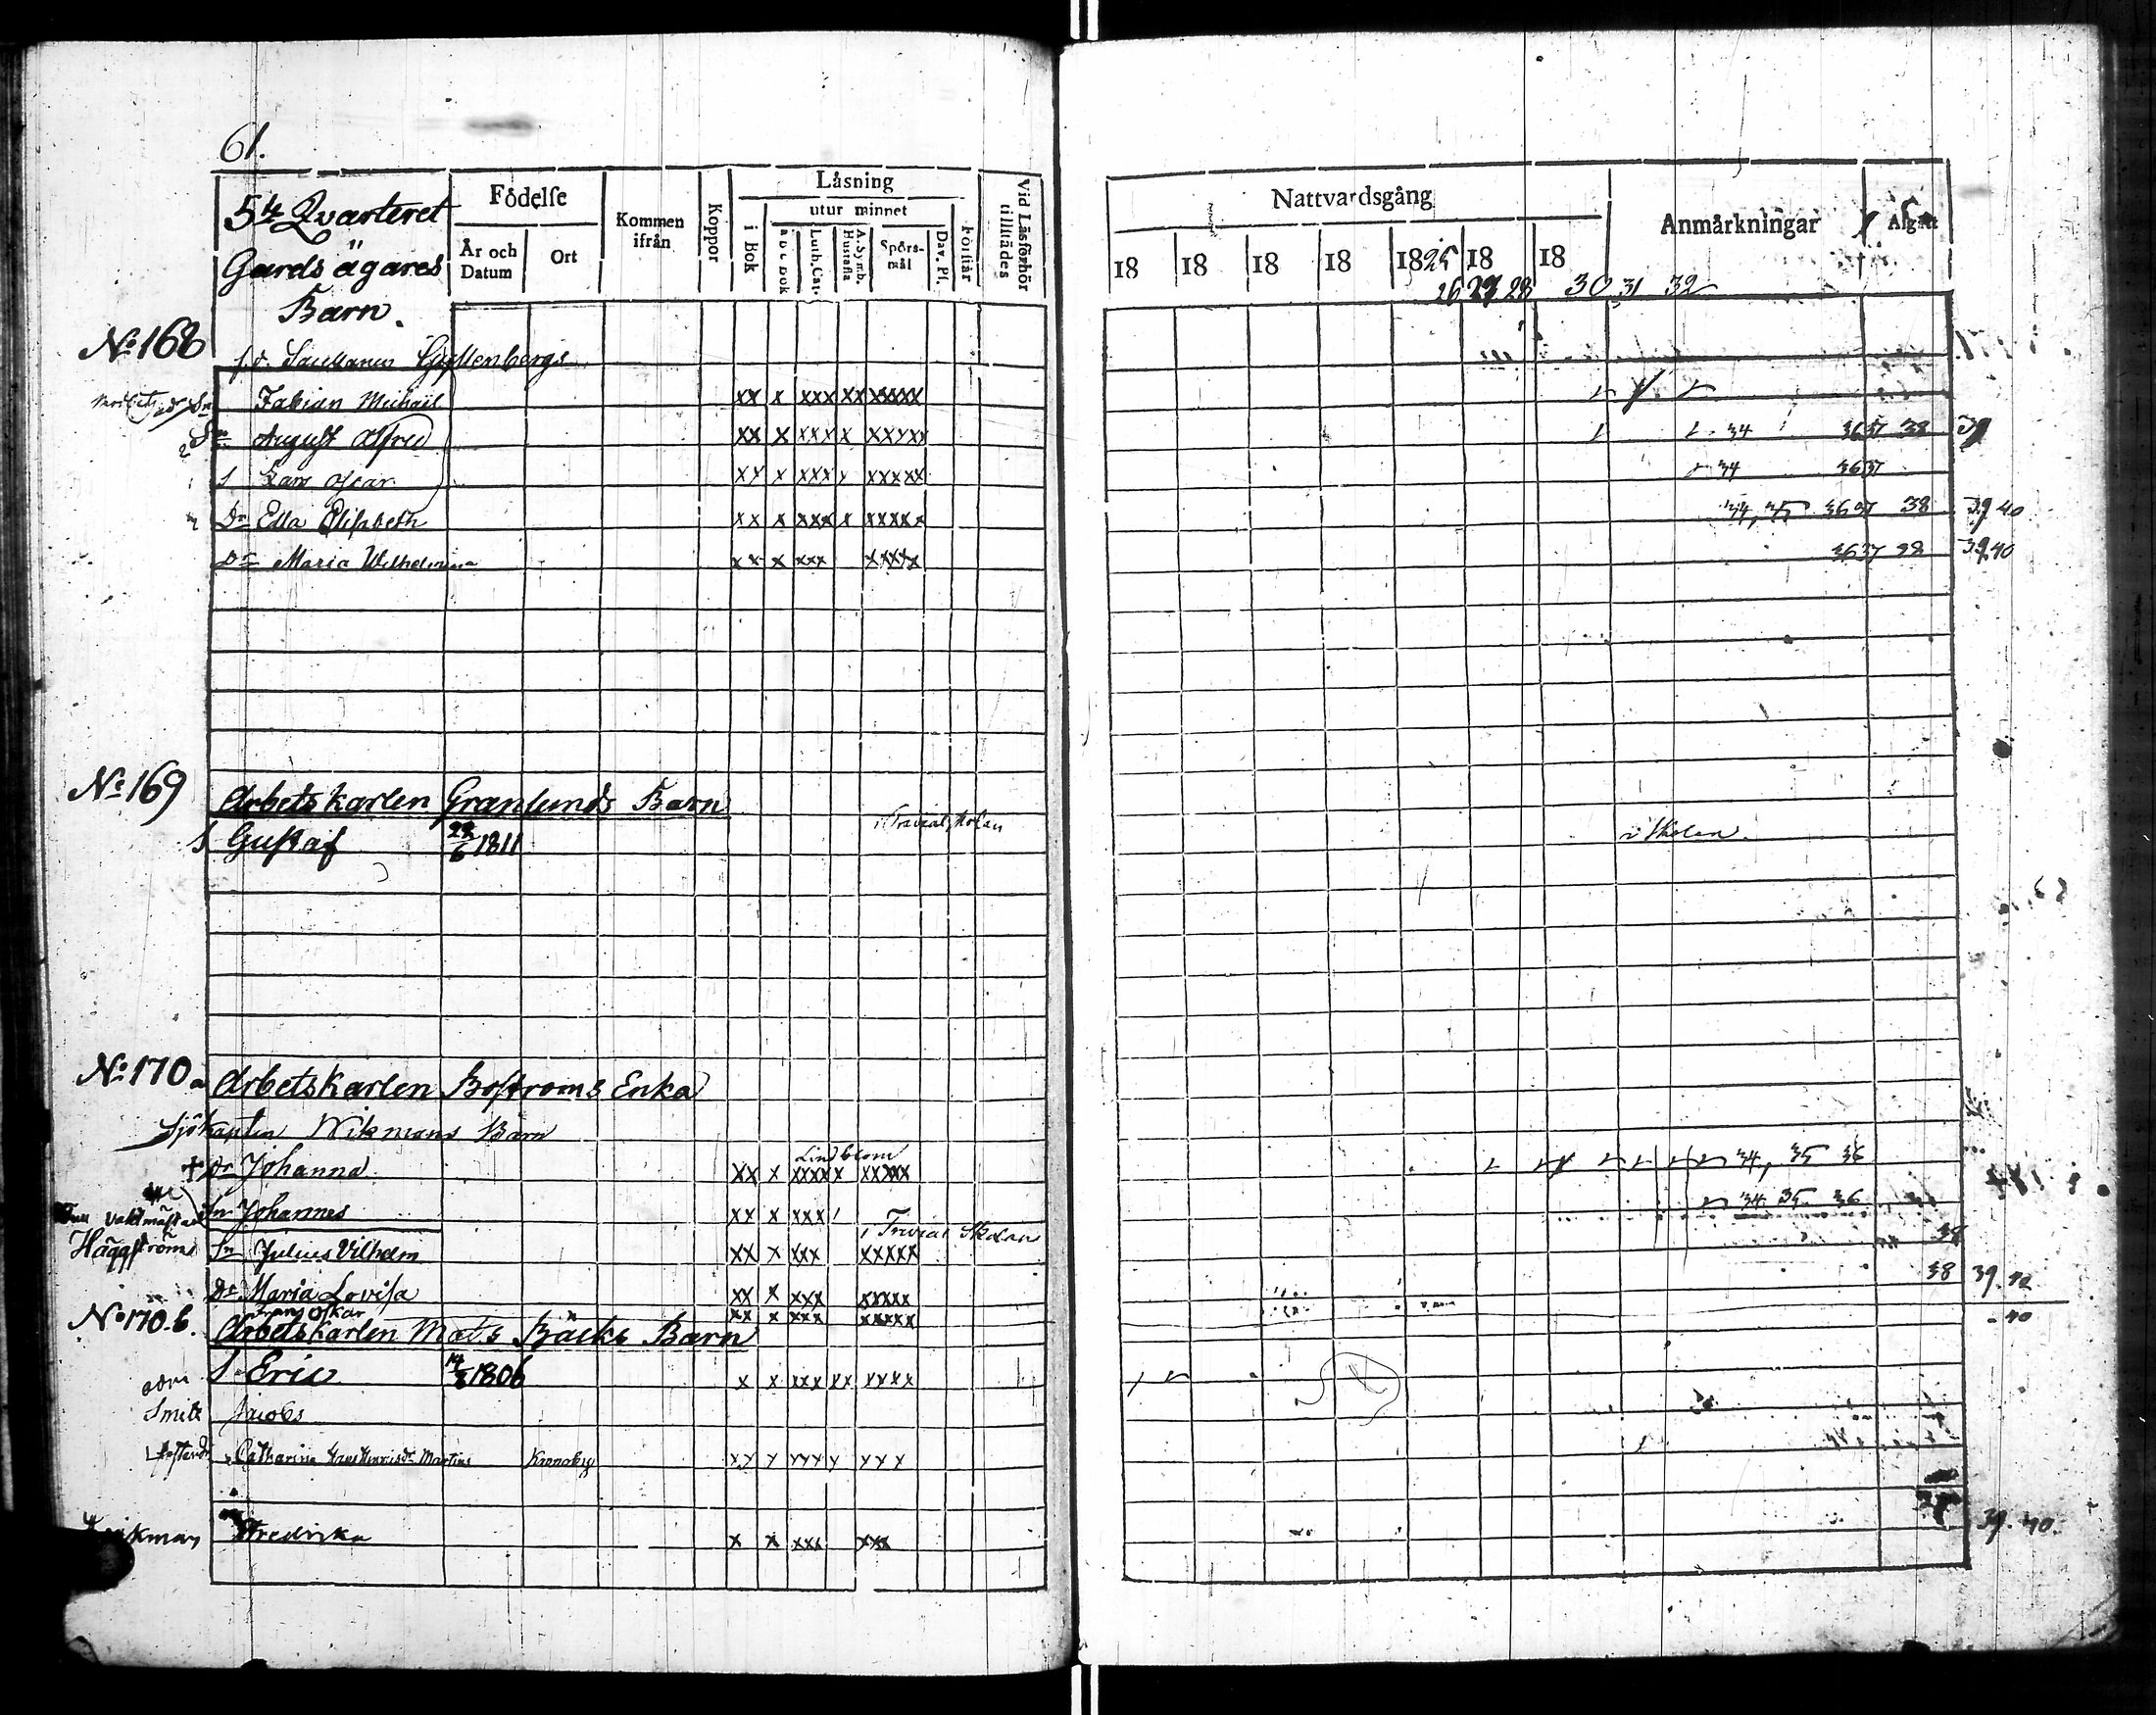 61.
5te Qvarteret
Gårds ägares
Barn.
Födelse
År och Datum
Ort
Kommen ifrån
Koppor
Läsning
i Bok
utur minnet
A B C Bok
Luth. Cat.
A. Symb. Hustafla
Spörs-mål
Dav. Ps.
Förstår
Vid Läsförhör tillstädes
Nattvardsgång
Anmärkningar
Afgått
18 18 18 18 1825 18 18
26 27 28 30 31 32
No 168
Gyllenbergs
Fabian Michaël xx x xxx xx xxxxx
Sn August Alfred xx x xxx x xxxxx 34 36 37 38 39
S Lars Oscar xx x xxx x xxxxx 34 36 37
Dr Edla Elisabeth xx x xxx x xxxxx 34, 35 36 37 38 39 40
Dr Maria Wilhelmina xx x xxx xxxxx 36 37 38 39 40
No 169
Arbetskarlen Granlunds Barn
S Gustaf 28/6 1811 i Trivialskolan i Skolan
No 170 a
Arbetskarlen Boströms Enka
Sjökapten Wikmans Barn
Lindblom
+ Dr Johanna xx x xxxx x xxxxx 34, 35 36
Sn Johannes xx x xxx i Trivial Skolan 34 35 36
Vaktmästare
Häggströms Sn Julius Vilhelm xx x xxx xxxxx 38
Dr Maria Lovisa xx x xxx xxxxx 38 39. 40
Frans Oskar xx x xxx xxxxx 40
No 170. b.
Arbetskarlen Mats Bäcks Barn
S Eric 14/3 1806 x x xxx xx xxxx
Smite Jacobs
Catharina Martins Kronoby xx x xxxx xxx
Fredrika x x xxx xxx 39. 40.